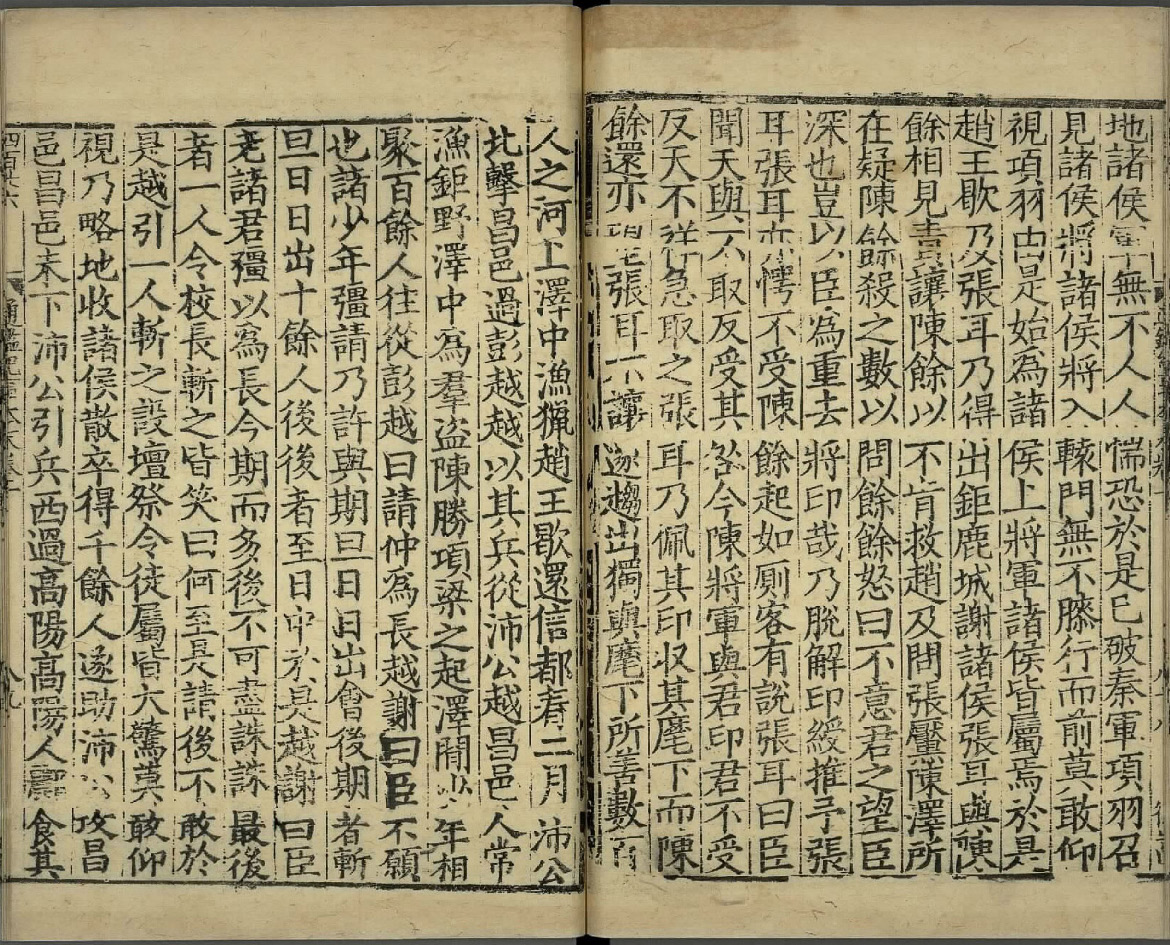 地諸侯軍無不人人惴恐於是已破秦軍項羽召
見諸侯將諸侯將入轅門無不膝行而前莫敢仰
視項羽由是始為諸侯上將軍諸侯皆屬焉於是
趙王歇及張耳乃得出鉅鹿城謝諸侯張耳與陳
餘相見責讓陳餘以不肯救趙及問張黶陳澤所
在疑陳餘殺之數以問餘餘怒曰不意君之望臣
深也豈以臣為重去將印哉乃脫解印綬推予張
耳張耳亦愕不受陳餘起如厠客有說張耳曰臣
聞天與不取反受其咎今陳將軍與君印君不受
反天不祥急取之張耳乃佩其印収其麾下而陳
餘還亦望張耳不讓遂趨出獨與麾下所善數百
人之河上澤中漁獵趙王歇還信都春二月沛公
北擊昌邑過彭越越以其兵從沛公越昌邑人常
漁鉅野澤中為羣盗陳勝項梁之起澤間少年相
聚百餘人往從彭越曰請仲為長越謝曰臣不願
也諸少年彊請乃許與期旦日日出會後期者斬
旦日日出十餘人後後者至日中於是越謝曰臣
老諸君彊以為長今期而多後不可盡誅誅最後
者一人令校長斬之皆笑曰何至是請後不敢於
是越引一人斬之設壇祭令徒屬皆大驚莫敢仰
視乃略地收諸侯散卒得千餘人遂助沛公攻昌
邑昌邑未下沛公引兵西過高陽高陽人酈食其